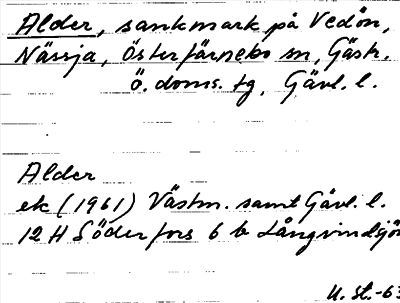 Alder, sankmark på Vedön,
Nässja, Österfärnebo sn, Gästr.
Ö. doms. tg, Gävl. l.
Alder
ek (1961) Västm. samt Gävl. l.
12 H Söderfors 6 b Långvindsjön
U. St.-63